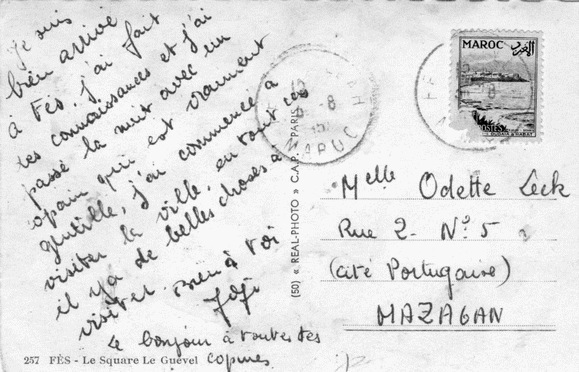 Je suis
bien arrivé
à Fès. j'ai fait
des connaissances et j'ai
passé la nuit avec un
copain qui est vraiment
gentille, j'ai commencé à
visiter la ville, en tout cas
il y a de belles choses à
visiter. Bien à toi
Jojo
Le bonjour à toutes tes
copines
257 FÈS - Le Square Le Guével
(50) « REAL-PHOTO » C.A.P. PARIS
MAROC
MAROC
POSTES
Melle Odette Leck
Rue 2 - No 5
(cité Portugaise)
MAZAGAN